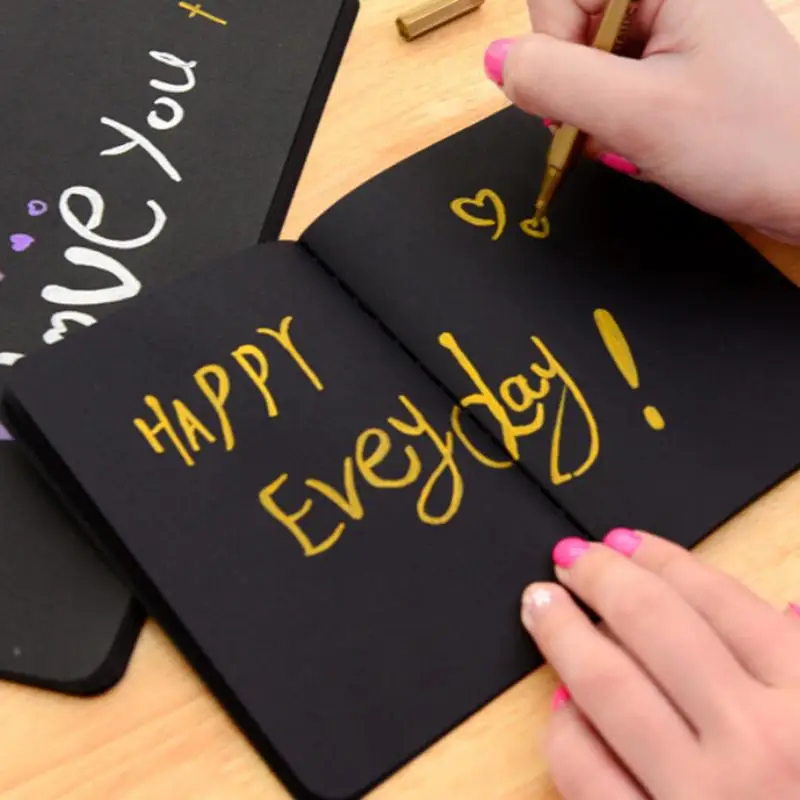 ve You
HAPPY
Evey day!